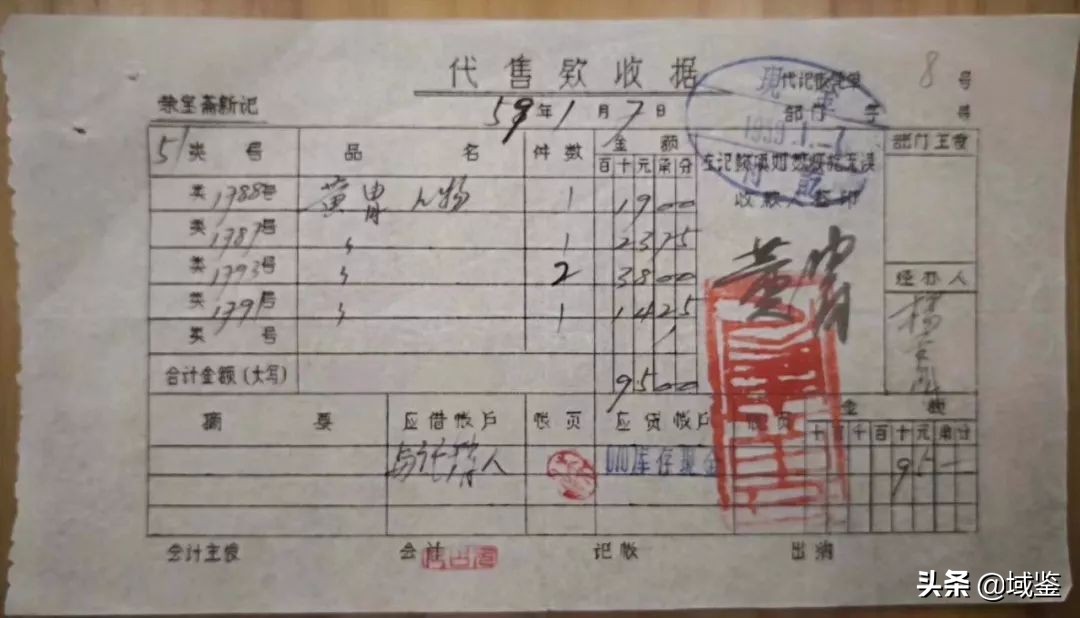 代售款收据
8 号
荣宝斋新记
59年1月7日
代记账凭单
部门 字 号
1959.1.7
51 类 号 品 名 件数 金额 部门主管
百十元角分
类1788号 黄胄 人物 1 19 00
收款人签印
类1787号 〃 1 23 75
黄胄
类1793号 〃 2 38 00
经办人
类1791号 〃 1 14 25
类 号
合计金额(大写) 95 00
摘 要 应借帐户 帐页 应贷帐户 帐页 金 额
十万千百十元角分
与记 人 库存现金 95
会计主管 会计 记帐 出纳
头条 @域鉴